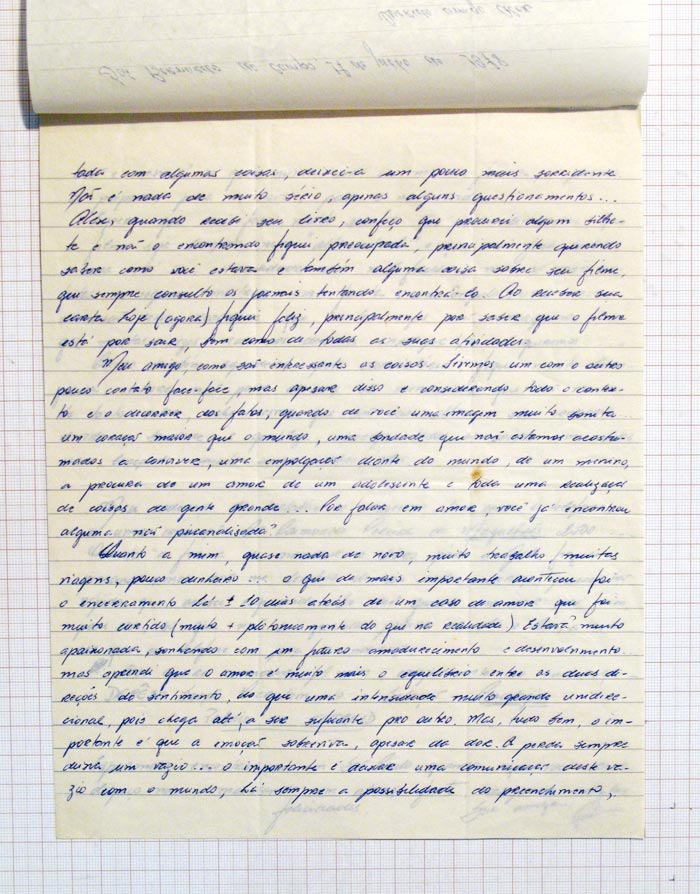 tada com algumas coisas, deixei-a um pouco mais sorridente
Não é nada de muito sério, apenas alguns questionamentos...
Alex, quando recebi seu livro, confeço que procurei algum bilhe-
te e não o encontrando fiquei preocupada, principalmente querendo
saber como você estava e também alguma coisa sobre seu filme,
que sempre consulto os jornais tentando encontra-lo. Ao receber sua
carta hoje (agora) fiquei feliz, principalmente por saber que o filme
está por sair, bem como de todas as suas atividades.
Meu amigo, como são interessantes as coisas. Tivemos um com o outro
pouco contato face-face, mas apesar disso e considerando todo o contex-
to e o decorrer dos fatos, guardo de você uma imagem muito bonita...
um coração maior que o mundo, uma bondade que não estamos acostu-
mados a conviver, uma empolgação diante do mundo, de um menino,
a procura de um amor de um adolescente e toda uma realização
de coisas de gente grande... Por falar em amor você já encontrou
alguma não psicanalisada?
Quanto a mim, quase nada de novo, muito trabalho, muitas
viagens, pouco dinheiro... o que de mais importante aconteceu foi
o encerramento há ± 20 dias atrás de um caso de amor que foi
muito curtido (muito + platonicamente do que na realidade) Estava muito
apaixonada, sonhando com um futuro amadurecimento e desenvolvimento
mas aprendi que o amor é muito mais o equilíbrio entre as duas di-
reções do sentimento, do que uma intensidade muito grande unidire-
cional, pois chega até, a ser sufocante pro outro. Mas, tudo bem, o im-
portante é que a emoção sobreviva, apesar da dor. A perda sempre
deixa um vazio... o importante é deixar uma comunicação deste va-
zio com o mundo, há sempre a possibilidade do preenchimento,